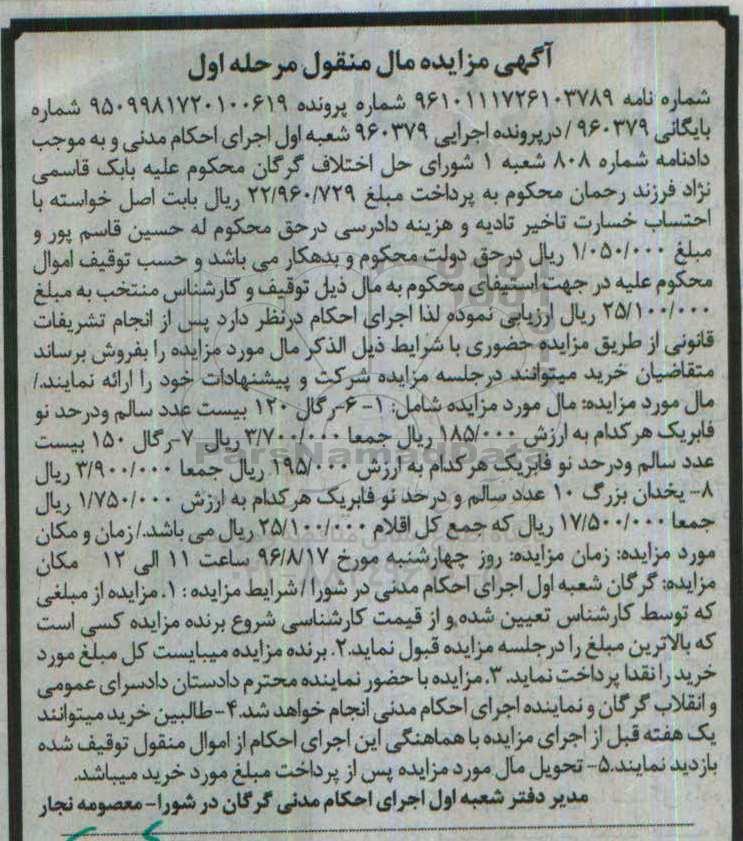 آگهی مزایده مال منقول مرحله اول
شماره نامه ۹۶۱۰۱۱۱۷۲۶۱۰۳۷۸۹ شماره پرونده ۹۵۰۹۹۸۱۷۲۰۱۰۰۶۱۹ شماره
بایگانی ۹۶۰۳۷۹ / درپرونده اجرایی ۹۶۰۳۷۹ شعبه اول اجرای احکام مدنی و به موجب
دادنامه شماره ۸۰۸ شعبه ۱ شورای حل اختلاف گرگان محکوم علیه بابک قاسمی
نژاد فرزند رحمان محکوم به پرداخت مبلغ ۲۲/۹۶۰/۷۲۹ ریال بابت اصل خواسته با
احتساب خسارت تاخیر تادیه و هزینه دادرسی درحق محکوم له حسین قاسم پور و
مبلغ ۱/۰۵۰/۰۰۰ ریال درحق دولت محکوم و بدهکار می باشد و حسب توقیف اموال
محکوم علیه در جهت استیفای محکوم به مال ذیل توقیف و کارشناس منتخب به مبلغ
۲۵/۱۰۰/۰۰۰ ریال ارزیابی نموده لذا اجرای احکام درنظر دارد پس از انجام تشریفات
قانونی از طریق مزایده حضوری با شرایط ذیل الذکر مال مورد مزایده را بفروش برساند
متقاضیان خرید میتوانند درجلسه مزایده شرکت و پیشنهادات خود را ارائه نمایند./
مال مورد مزایده: مال مورد مزایده شامل: ۱- ۶-رگال ۱۲۰ بیست عدد سالم ودرحد نو
فابریک هرکدام به ارزش ۱۸۵/۰۰۰ ریال جمعا ۳/۷۰۰/۰۰۰ ریال ۷-رگال ۱۵۰ بیست
عدد سالم ودرحد نو فابریک هرکدام به ارزش ۱۹۵/۰۰۰ ریال جمعا ۳/۹۰۰/۰۰۰ ریال
۸- یخدان بزرگ ۱۰ عدد سالم و درحد نو فابریک هرکدام به ارزش ۱/۷۵۰/۰۰۰ ریال
جمعا ۱۷/۵۰۰/۰۰۰ ریال که جمع کل اقلام ۲۵/۱۰۰/۰۰۰ ریال می باشد./زمان و مکان
مورد مزایده: زمان مزایده: روز چهارشنبه مورخ ۹۶/۸/۱۷ ساعت ۱۱ الی ۱۲ مکان
مزایده: گرگان شعبه اول اجرای احکام مدنی در شورا/ شرایط مزایده : ۱. مزایده از مبلغی
که توسط کارشناس تعیین شده و از قیمت کارشناسی شروع برنده مزایده کسی است
که بالاترین مبلغ را درجلسه مزایده قبول نماید.۲. برنده مزایده میبایست کل مبلغ مورد
خرید را نقدا پرداخت نماید. ۳. مزایده با حضور نماینده محترم دادستان دادسرای عمومی
و انقلاب گرگان و نماینده اجرای احکام مدنی انجام خواهد شد.۴- طالبین خرید میتوانند
یک هفته قبل از اجرای مزایده با هماهنگی این اجرای احکام از اموال منقول توقیف شده
بازدید نمایند.۵- تحویل مال مورد مزایده پس از پرداخت مبلغ مورد خرید میباشد.
مدیر دفتر شعبه اول اجرای احکام مدنی گرگان در شورا- معصومه نجار
ParsNamadData